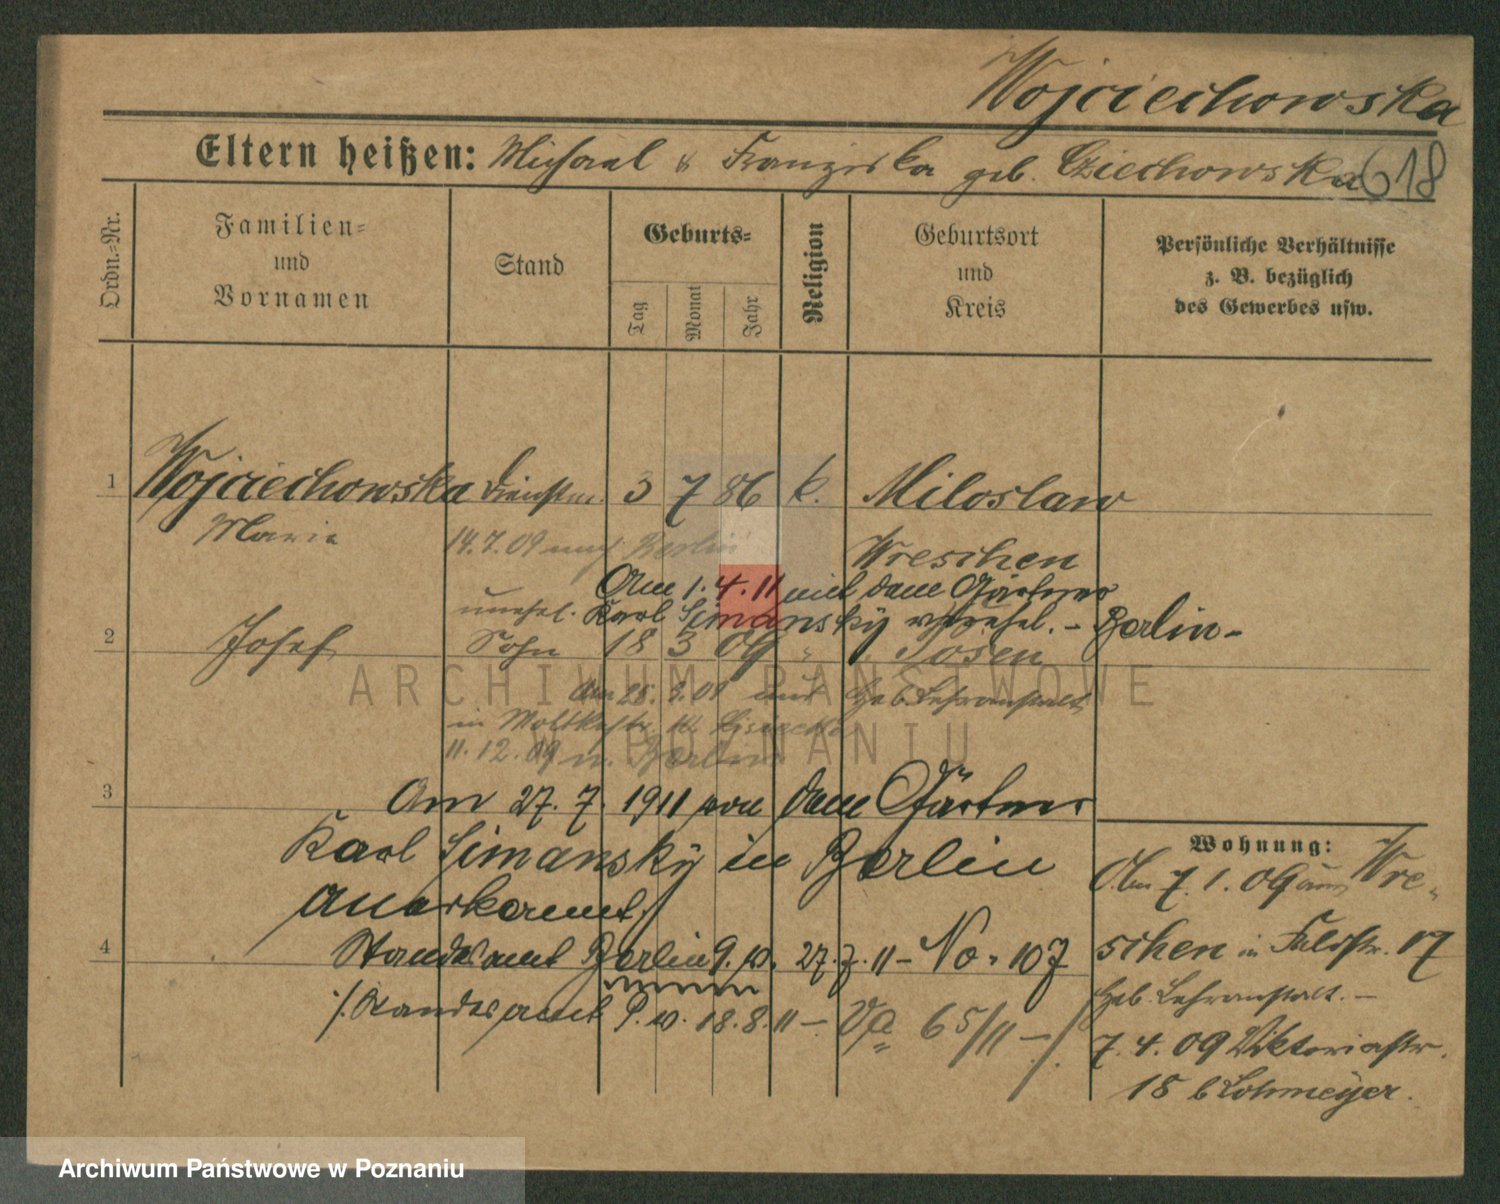 Wojciechowska
Eltern heißen: Michael u Franziska geb. Cziechowska 618
Ordn.-Nr.
Familien-
und
Vornamen
Stand
Geburts-
Tag
Monat
Jahr
Religion
Geburtsort
und
Kreis
Persönliche Verhältnisse
z. B. bezüglich
des Gewerbes usw.
1 Wojciechowska Dienstm. 3 7 86 k. Miloslaw
Marie 14.7.09 nach Berlin Wreschen
Am 1.4.11 mit dem Gärtner
unehel. Karl Simansky verehel. - Berlin -
2 Josef Sohn 18 3 09 " Posen
Am 25. 3. 09 Heb. Lehranstalt
in Moltkestr.
11.12.09 n. Berlin
ARCHIWUM PAŃSTWOWE
W POZNANIU
3 Am 27. 7. 1911 von dem Gärtner
Karl Simansky in Berlin
anerkannt,
4 Standesamt Berlin 9. 27.7.11 - No. 107
/. Standesamt P. 18.8.11 - Va 65/11 - /.
Wohnung:
Am 7.1.09 aus Wre-
schen in Feldstr. 17
Heb. Lehranstalt. -
7.4.09 Viktoriastr.
18 b Lohmeyer.
Archiwum Państwowe w Poznaniu